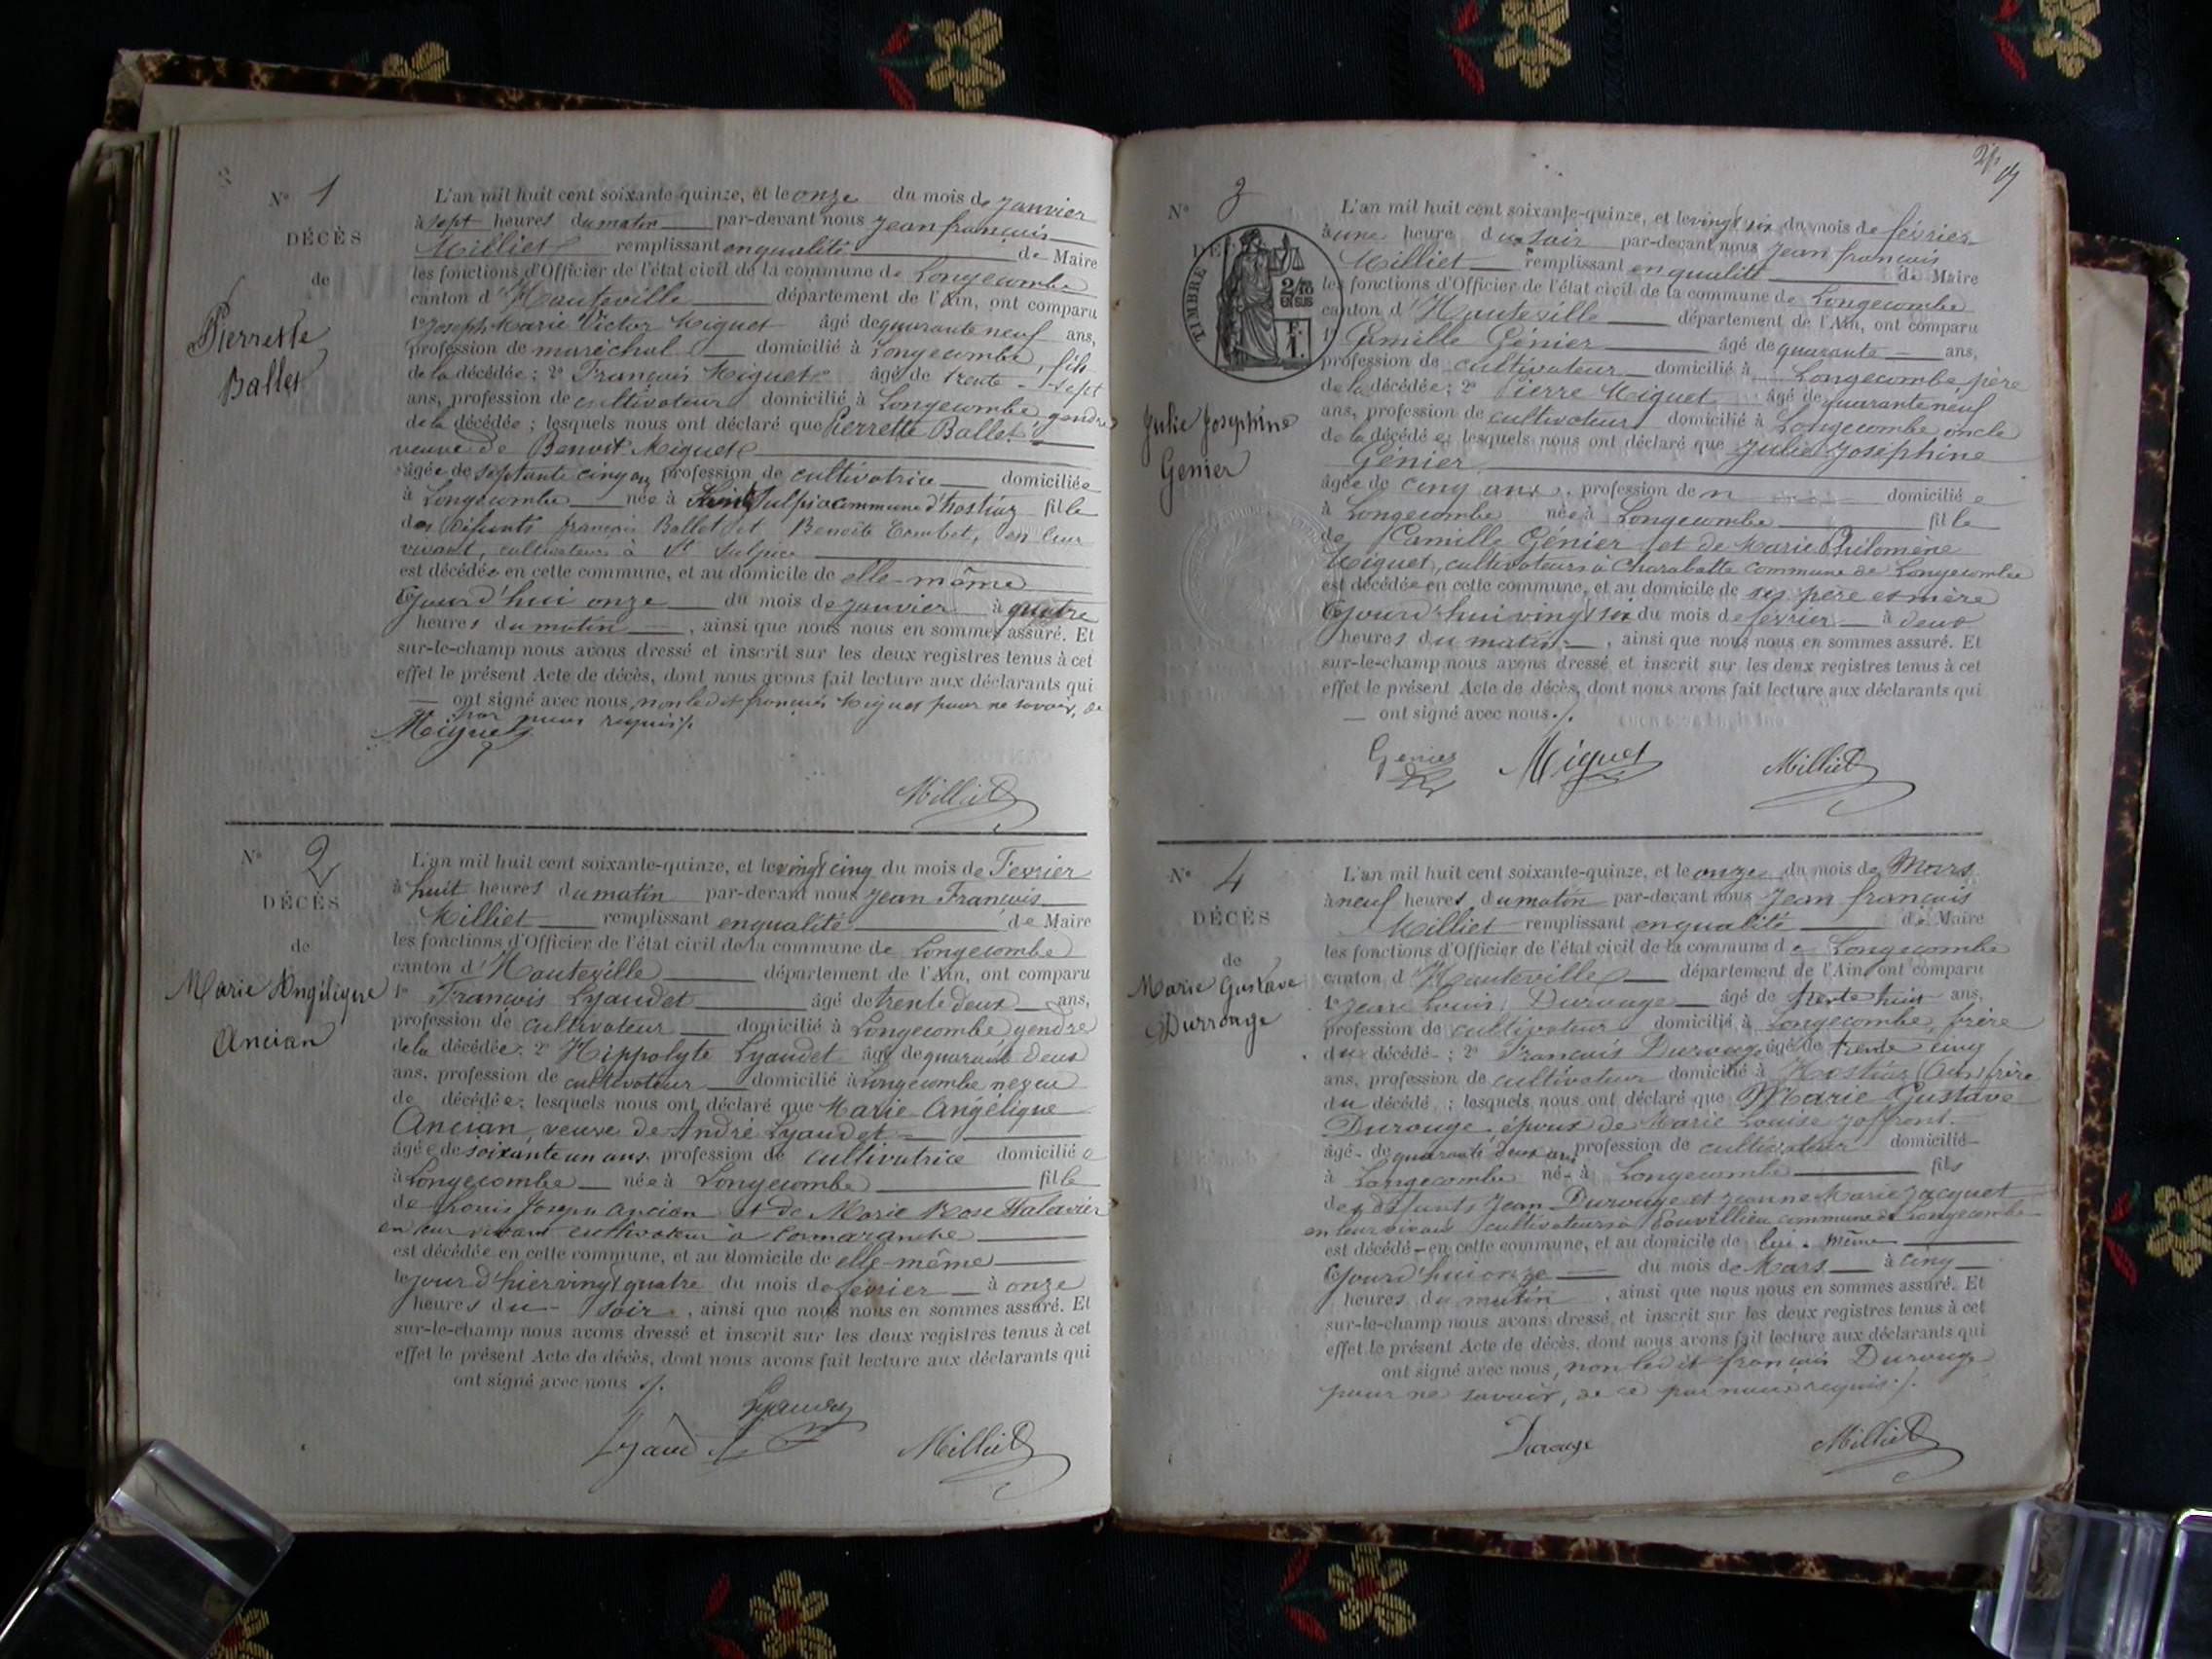 N° 1
DÉCÈS
de
Pierrette
Ballet
L'an mil huit cent soixante-quinze, et le onze du mois de janvier
à sept heures du matin par-devant nous Jean françois
Milliet remplissant en qualité de Maire
les fonctions d'Officier de l'état civil de la commune de Longecombe
canton d'Hauteville département de l'Ain, ont comparu
1° Joseph Marie Victor Miguet âgé de quarante neuf ans,
profession de maréchal domicilié à Longecombe, fils
de la décédée; 2° François Miguet âgé de trente-sept
ans, profession de cultivateur domicilié à Longecombe gendre
de la décédée; lesquels nous ont déclaré que Pierrette Ballet
veuve de Benoit Miguet
âgée de septante cinq ans profession de cultivatrice domiciliée
à Longecombe née à Saint Sulpice commune d'hostiaz fille
des défunts françois Ballet et Benoîte Combet, en leur
vivant, cultivateurs à St Sulpice
est décédée en cette commune, et au domicile de elle-même
Cejourd'hui onze du mois de janvier à quatre
heures du matin, ainsi que nous nous en sommes assuré. Et
sur-le-champ nous avons dressé et inscrit sur les deux registres tenus à cet
effet le présent Acte de décès, dont nous avons fait lecture aux déclarants qui
ont signé avec nous, non ledit françois Miguet pour ne savoir, de
ce par nous requis /.
Miguet
Milliet
N° 2
DÉCÈS
de
Marie Angélique
Ancian
L'an mil huit cent soixante-quinze, et le vingt cinq du mois de Fevrier
à huit heures du matin par-devant nous Jean François
Milliet remplissant en qualité de Maire
les fonctions d'Officier de l'état civil de la commune de Longecombe
canton d'Hauteville département de l'Ain, ont comparu
1° François Lyaudet âgé de trente deux ans,
profession de cultivateur domicilié à Longecombe gendre
de la décédée; 2° Hippolyte Lyaudet âgé de quarante deux
ans, profession de cultivateur domicilié à Longecombe neveu
de décédée; lesquels nous ont déclaré que Marie Angélique
Ancian, veuve de André Lyaudet
âgée de soixante un ans, profession de cultivatrice domiciliée
à Longecombe née à Longecombe fille
de Louis Joseph Ancian et de Marie Rose
en leur vivant cultivateurs à Cormaranche
est décédée en cette commune, et au domicile de elle-même
le jour d'hier vingt quatre du mois de fevrier à onze
heures du soir, ainsi que nous nous en sommes assuré. Et
sur-le-champ nous avons dressé et inscrit sur les deux registres tenus à cet
effet le présent Acte de décès, dont nous avons fait lecture aux déclarants qui
ont signé avec nous /.
Lyaudet
Lyaudet
Milliet
N° 3
DÉC
TIMBRE
2/10
EN SUS
Julie Josephine
Génier
L'an mil huit cent soixante-quinze, et le vingt six du mois de février
à une heure du soir par-devant nous Jean françois
Milliet remplissant en qualité de Maire
les fonctions d'Officier de l'état civil de la commune de Longecombe
canton d'Hauteville département de l'Ain, ont comparu
1° Camille Génier âgé de quarante ans,
profession de cultivateur domicilié à Longecombe, père
de la décédée; 2° Pierre Miguet âgé de quarante neuf
ans, profession de cultivateur domicilié à Longecombe oncle
de la décédée; lesquels nous ont déclaré que Julie Joséphine
Génier
âgée de cinq ans, profession de n domiciliée
à Longecombe née à Longecombe fille
de Camille Génier et de Marie Philomène
Miguet, cultivateurs à Charabotte commune de Longecombe
est décédée en cette commune, et au domicile de ses père et mère
Cejourd'hui vingt six du mois de février à deux
heures du matin, ainsi que nous nous en sommes assuré. Et
sur-le-champ nous avons dressé et inscrit sur les deux registres tenus à cet
effet le présent Acte de décès, dont nous avons fait lecture aux déclarants qui
ont signé avec nous. /.
Genier
Miguet
Milliet
N° 4
DÉCÈS
de
Marie Gustave
Durrouge
L'an mil huit cent soixante-quinze, et le onze du mois de Mars
à neuf heures du matin par-devant nous Jean françois
Milliet remplissant en qualité de Maire
les fonctions d'Officier de l'état civil de la commune de Longecombe
canton d'Hauteville département de l'Ain ont comparu
1° Jean Louis Durouge âgé de trente huit ans,
profession de cultivateur domicilié à Longecombe, frère
du décédé; 2° François Durouge âgé de trente cinq
ans, profession de cultivateur domicilié à Hostiaz (Ain) frère
du décédé; lesquels nous ont déclaré que Marie Gustave
Durouge, époux de Marie Louise Joffront
âgé de quarante deux ans profession de cultivateur domicilié
à Longecombe né à Longecombe fils
des défunts Jean Durouge et Jeanne Marie Jacquet
en leur vivant cultivateurs à commune de Longecombe
est décédé en cette commune, et au domicile de lui-même
Cejourd'hui onze du mois de Mars à cinq
heures du matin, ainsi que nous nous en sommes assuré. Et
sur-le-champ nous avons dressé et inscrit sur les deux registres tenus à cet
effet le présent Acte de décès, dont nous avons fait lecture aux déclarants qui
ont signé avec nous, non ledit françois Durouge
pour ne savoir, de ce par nous requis. /.
Durouge
Milliet